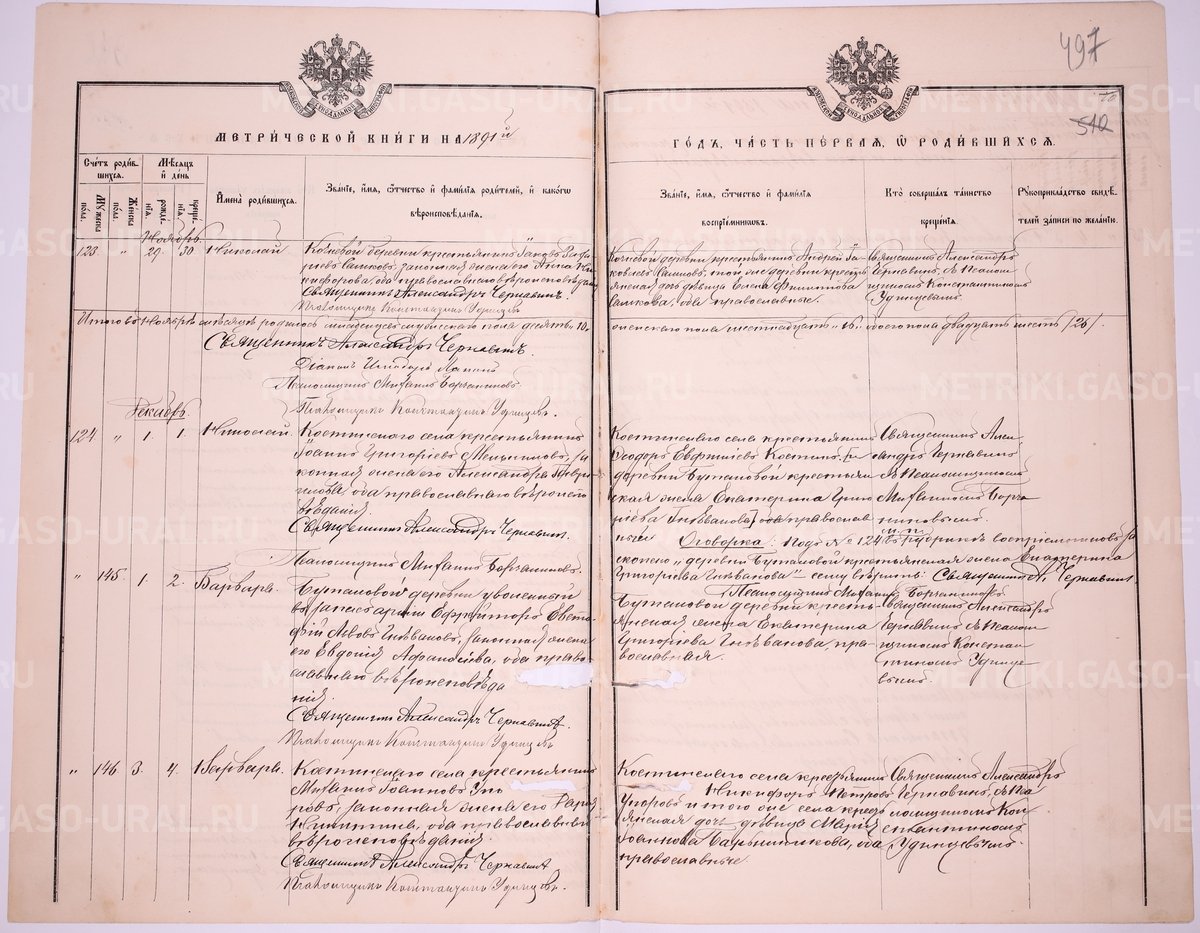 497
510
МЕТРИ́ЧЕСКОЙ КНИ́ГИ НА 1891й
ГО́ДЪ, ЧА́СТЬ ПЕ́РВАЯ, Ѡ РОДИ́ВШИХСЯ.
Сче́тъ роди́в-
шихся.
Мѣ́сяцъ
и́ де́нь
Му́жеска по́ла.
Же́нска по́ла.
рожде́-
нія.
креще́-
нія.
И҆мена̀ роди́вшихся.
Зва́нїе, и҆́мя, ѻ҆́тчество и҆ фами́лїя роди́телей, и҆ како́гѡ
вѣроисповѣ́данїя.
Зва́нїе, и҆́мя, ѻ҆́тчество и҆ фами́лїя
воспрїе́мниковъ.
Кто̀ соверша́лъ та́инство
креще́нїя.
Рꙋкоприкла́дство свидѣ́-
телей за́писи по жела́нїю.
Ноябрь
123 " 29. 30. Николай
Кочневой деревни крестьянинъ Іаковъ
законная жена его Анна Ни-
кифорова, оба православнаго вѣроисповѣданія
Священникъ Александръ Чернавинъ.
Псаломщикъ Константинъ Удинцевъ
Кочневой деревни крестьянинъ Андрей Іа-
ковлевъ той же деревни кресть-
янская дочь дѣвица Елена Филиппова
оба православные.
Священникъ Александръ
Чернавинъ, съ Псалом-
щикомъ Константиномъ
Удинцевымъ.
Итого въ Ноябрѣ мѣсяцѣ родилось младенцевъ мужескаго пола десять 10.
женскаго пола шестнадцать "16." обоего пола двадцать шесть /26/.
Священникъ Александръ Чернавинъ.
Діаконъ
Псаломщикъ Михаилъ Борчаниновъ.
Псаломщикъ Константинъ Удинцевъ.
Декабрь
124 " 1. 1. Николай.
Костинскаго села крестьянинъ
Іоаннъ Григорьевъ за-
конная жена его Александра
оба православнаго вѣроиспо-
вѣданія.
Священникъ Александръ Чернавинъ.
Псаломщикъ Михаилъ Борчаниновъ.
Костинскаго села крестьянинъ
Ѳеодоръ Евфиміевъ Костинъ, и
деревни Бутановой крестьян-
ская жена Екатерина Григо-
рьева Гнѣванова, оба православ-
ные.
Священникъ Алек-
сандръ Чернавинъ
съ Псаломщикомъ
Михаиломъ Борча-
ниновымъ.
Оговорка: Подъ № 124 въ рубрикѣ воспріемниковъ
"деревни Бутановой крестьянская жена Екатерина
Григорьева Гнѣванова" сему вѣрить. Священникъ А. Чернавинъ.
Псаломщикъ Михаилъ Борчаниновъ.
" 145 1. 2. Варвара.
Бутановой деревни уволенный
въ запасъ арміи Ефрейторъ Евста-
фій Львовъ Гнѣвановъ, законная жена
его Евдокія Афанасіева, оба право-
славнаго вѣроисповѣда-
нія.
Священникъ Александръ Чернавинъ.
Псаломщикъ Константинъ Удинцевъ
Бутановой деревни кресть-
янская жена Екатерина
Григорьева Гнѣванова, пра-
вославная.
Священникъ Александръ
Чернавинъ съ Псалом-
щикомъ Констан-
тиномъ Удинце-
вымъ.
" 146 3. 4. Варвара.
Костинскаго села крестьянинъ
Михаилъ Іоанновъ Упо-
ровъ, законная жена его Дарія
Никитина, оба православнаго
вѣроисповѣданія
Священникъ Александръ Чернавинъ
Псаломщикъ Константинъ Удинцевъ.
Костинскаго села крестьянинъ
Никифоръ Петровъ
Упоровъ и того же села кресть-
янская дочь дѣвица Марія
Іоаннова Парышникова, оба
православные.
Священникъ Александръ
Чернавинъ, съ Пса-
ломщикомъ Кон-
стантиномъ
Удинцевымъ.
METRIKI.GASO-URAL.RU